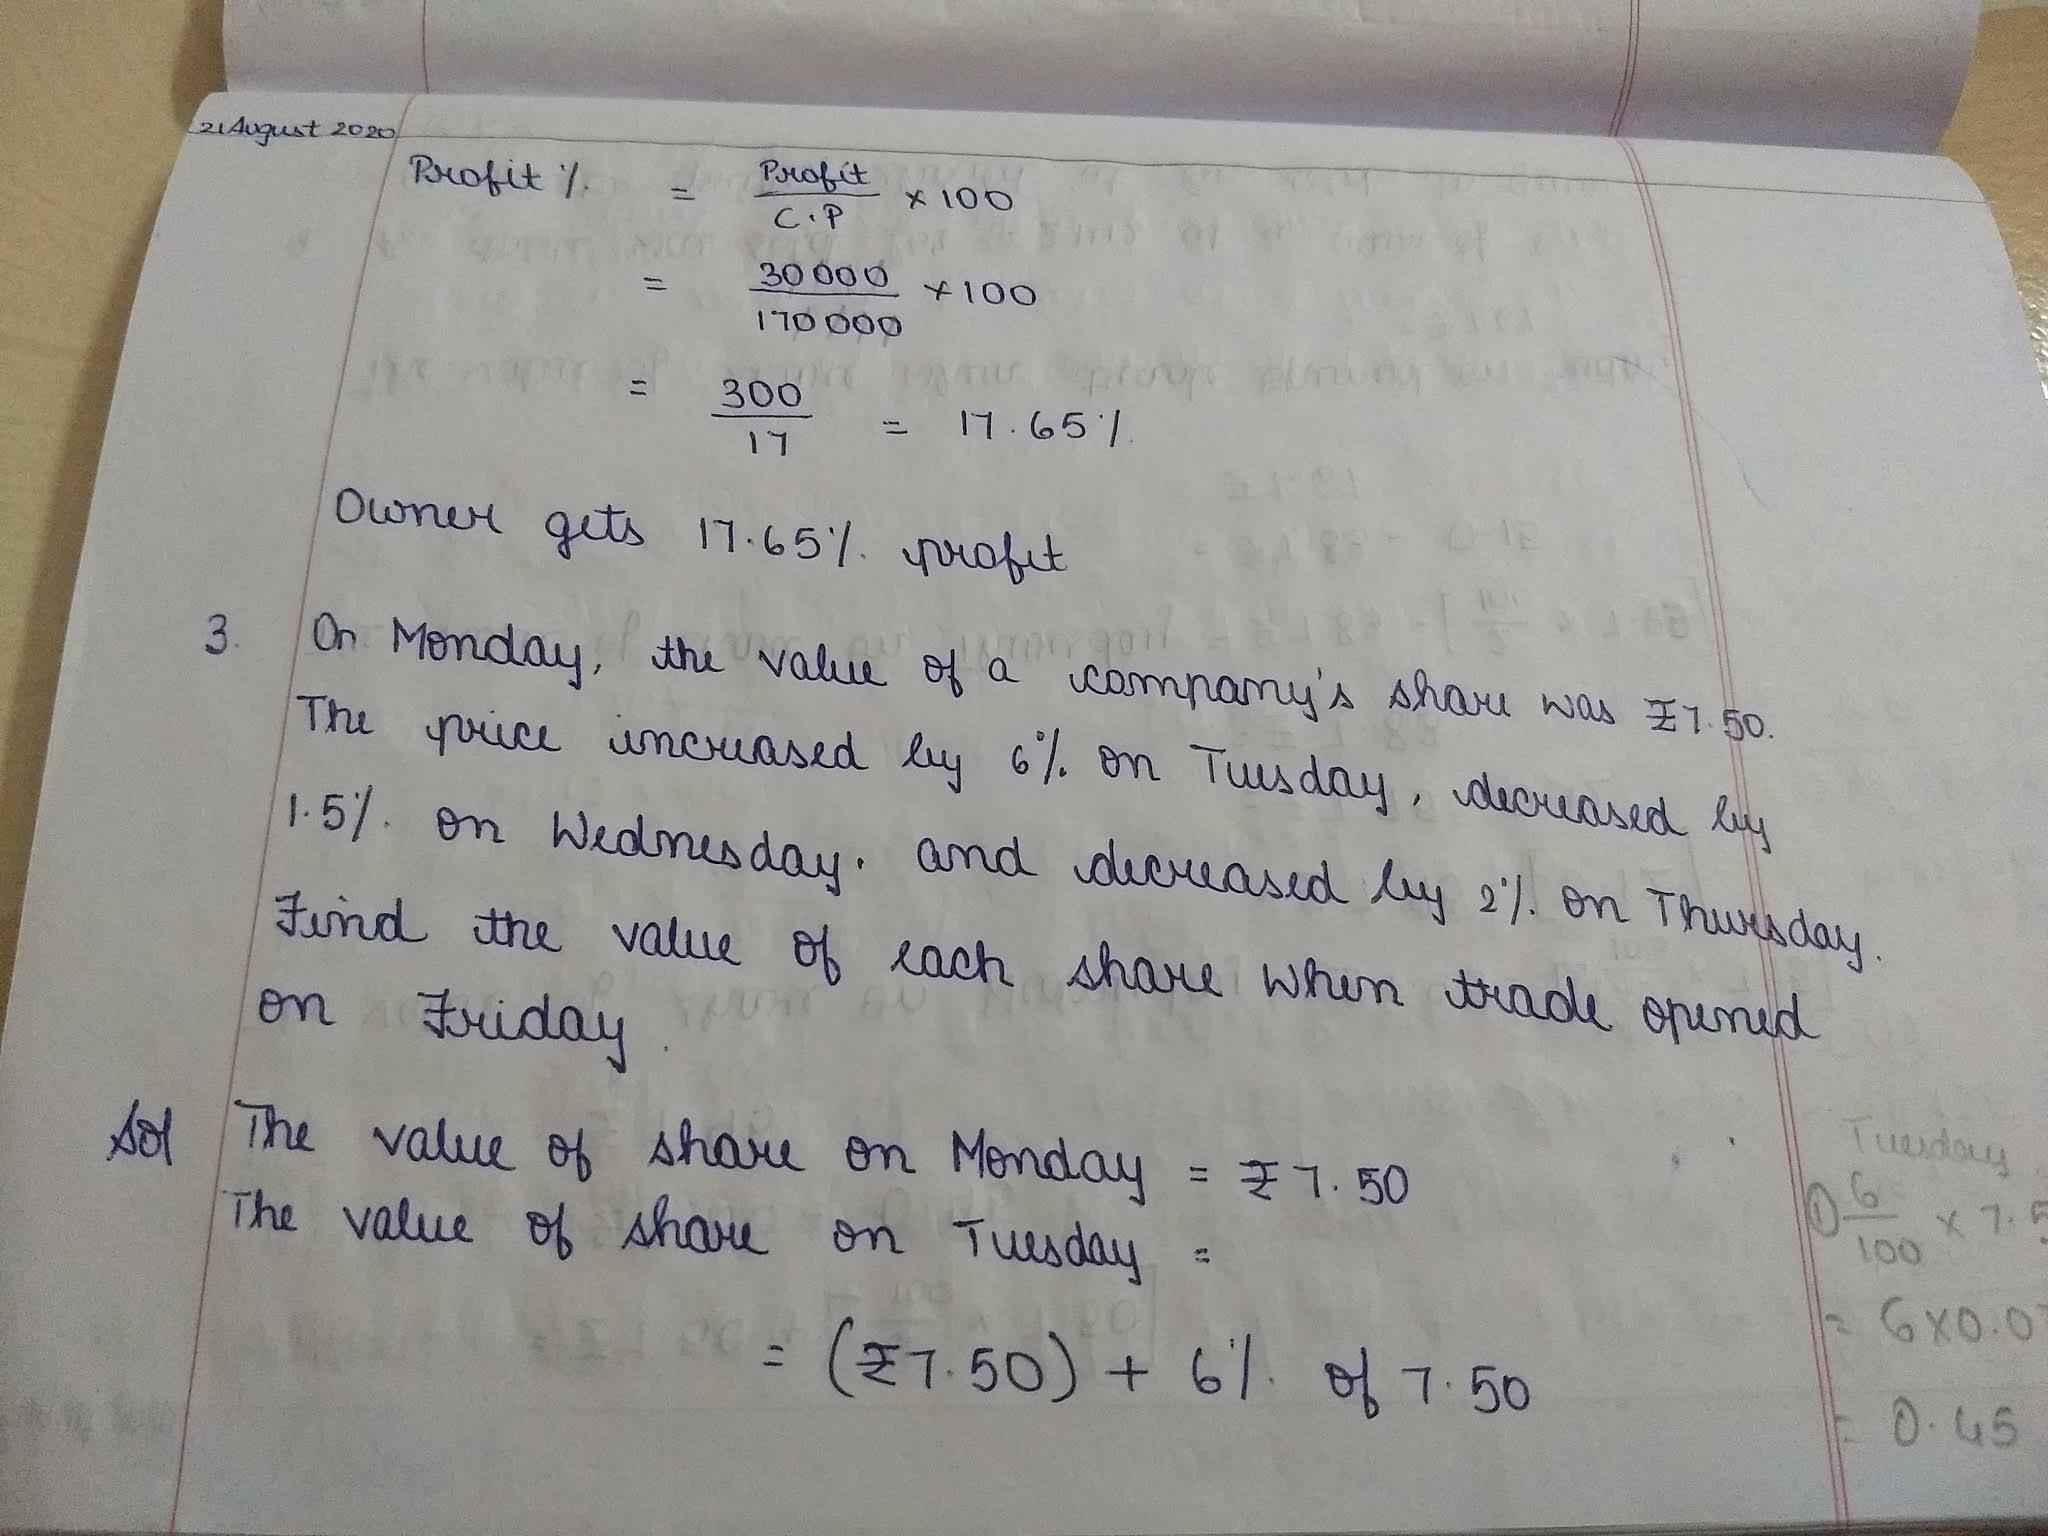 21 August 2020
Profit % = Profit/C.P × 100
= 30000/170000 × 100
= 300/17 = 17.65%
Owner gets 17.65% profit
3. On Monday, the value of a company's share was ₹7.50.
The price increased by 6% on Tuesday, decreased by
1.5% on Wednesday. and decreased by 2% on Thursday.
Find the value of each share when trade opened
on Friday.
Sol The value of share on Monday = ₹7.50
The value of share on Tuesday =
= (₹7.50) + 6% of 7.50
Tuesday
① 6/100 × 7.5
= 6×0.0
= 0.45